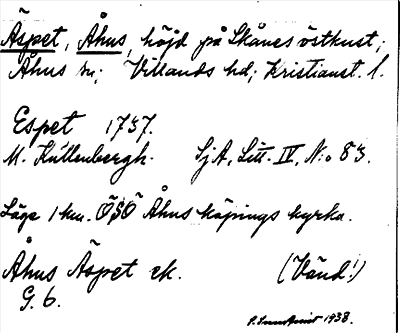 Äspet, Åhus, höjd på Skånes östkust;
Åhus sn; Villands hd; Kristianst. l.
Espet 1737.
M. Kúttenbergh. SjA, Litt. IV, N:o 83.
Läge 1 km. ÖSÖ Åhus köpings kyrka.
Åhus Äspet ek. (Vänd!)
G. 6.
1938.